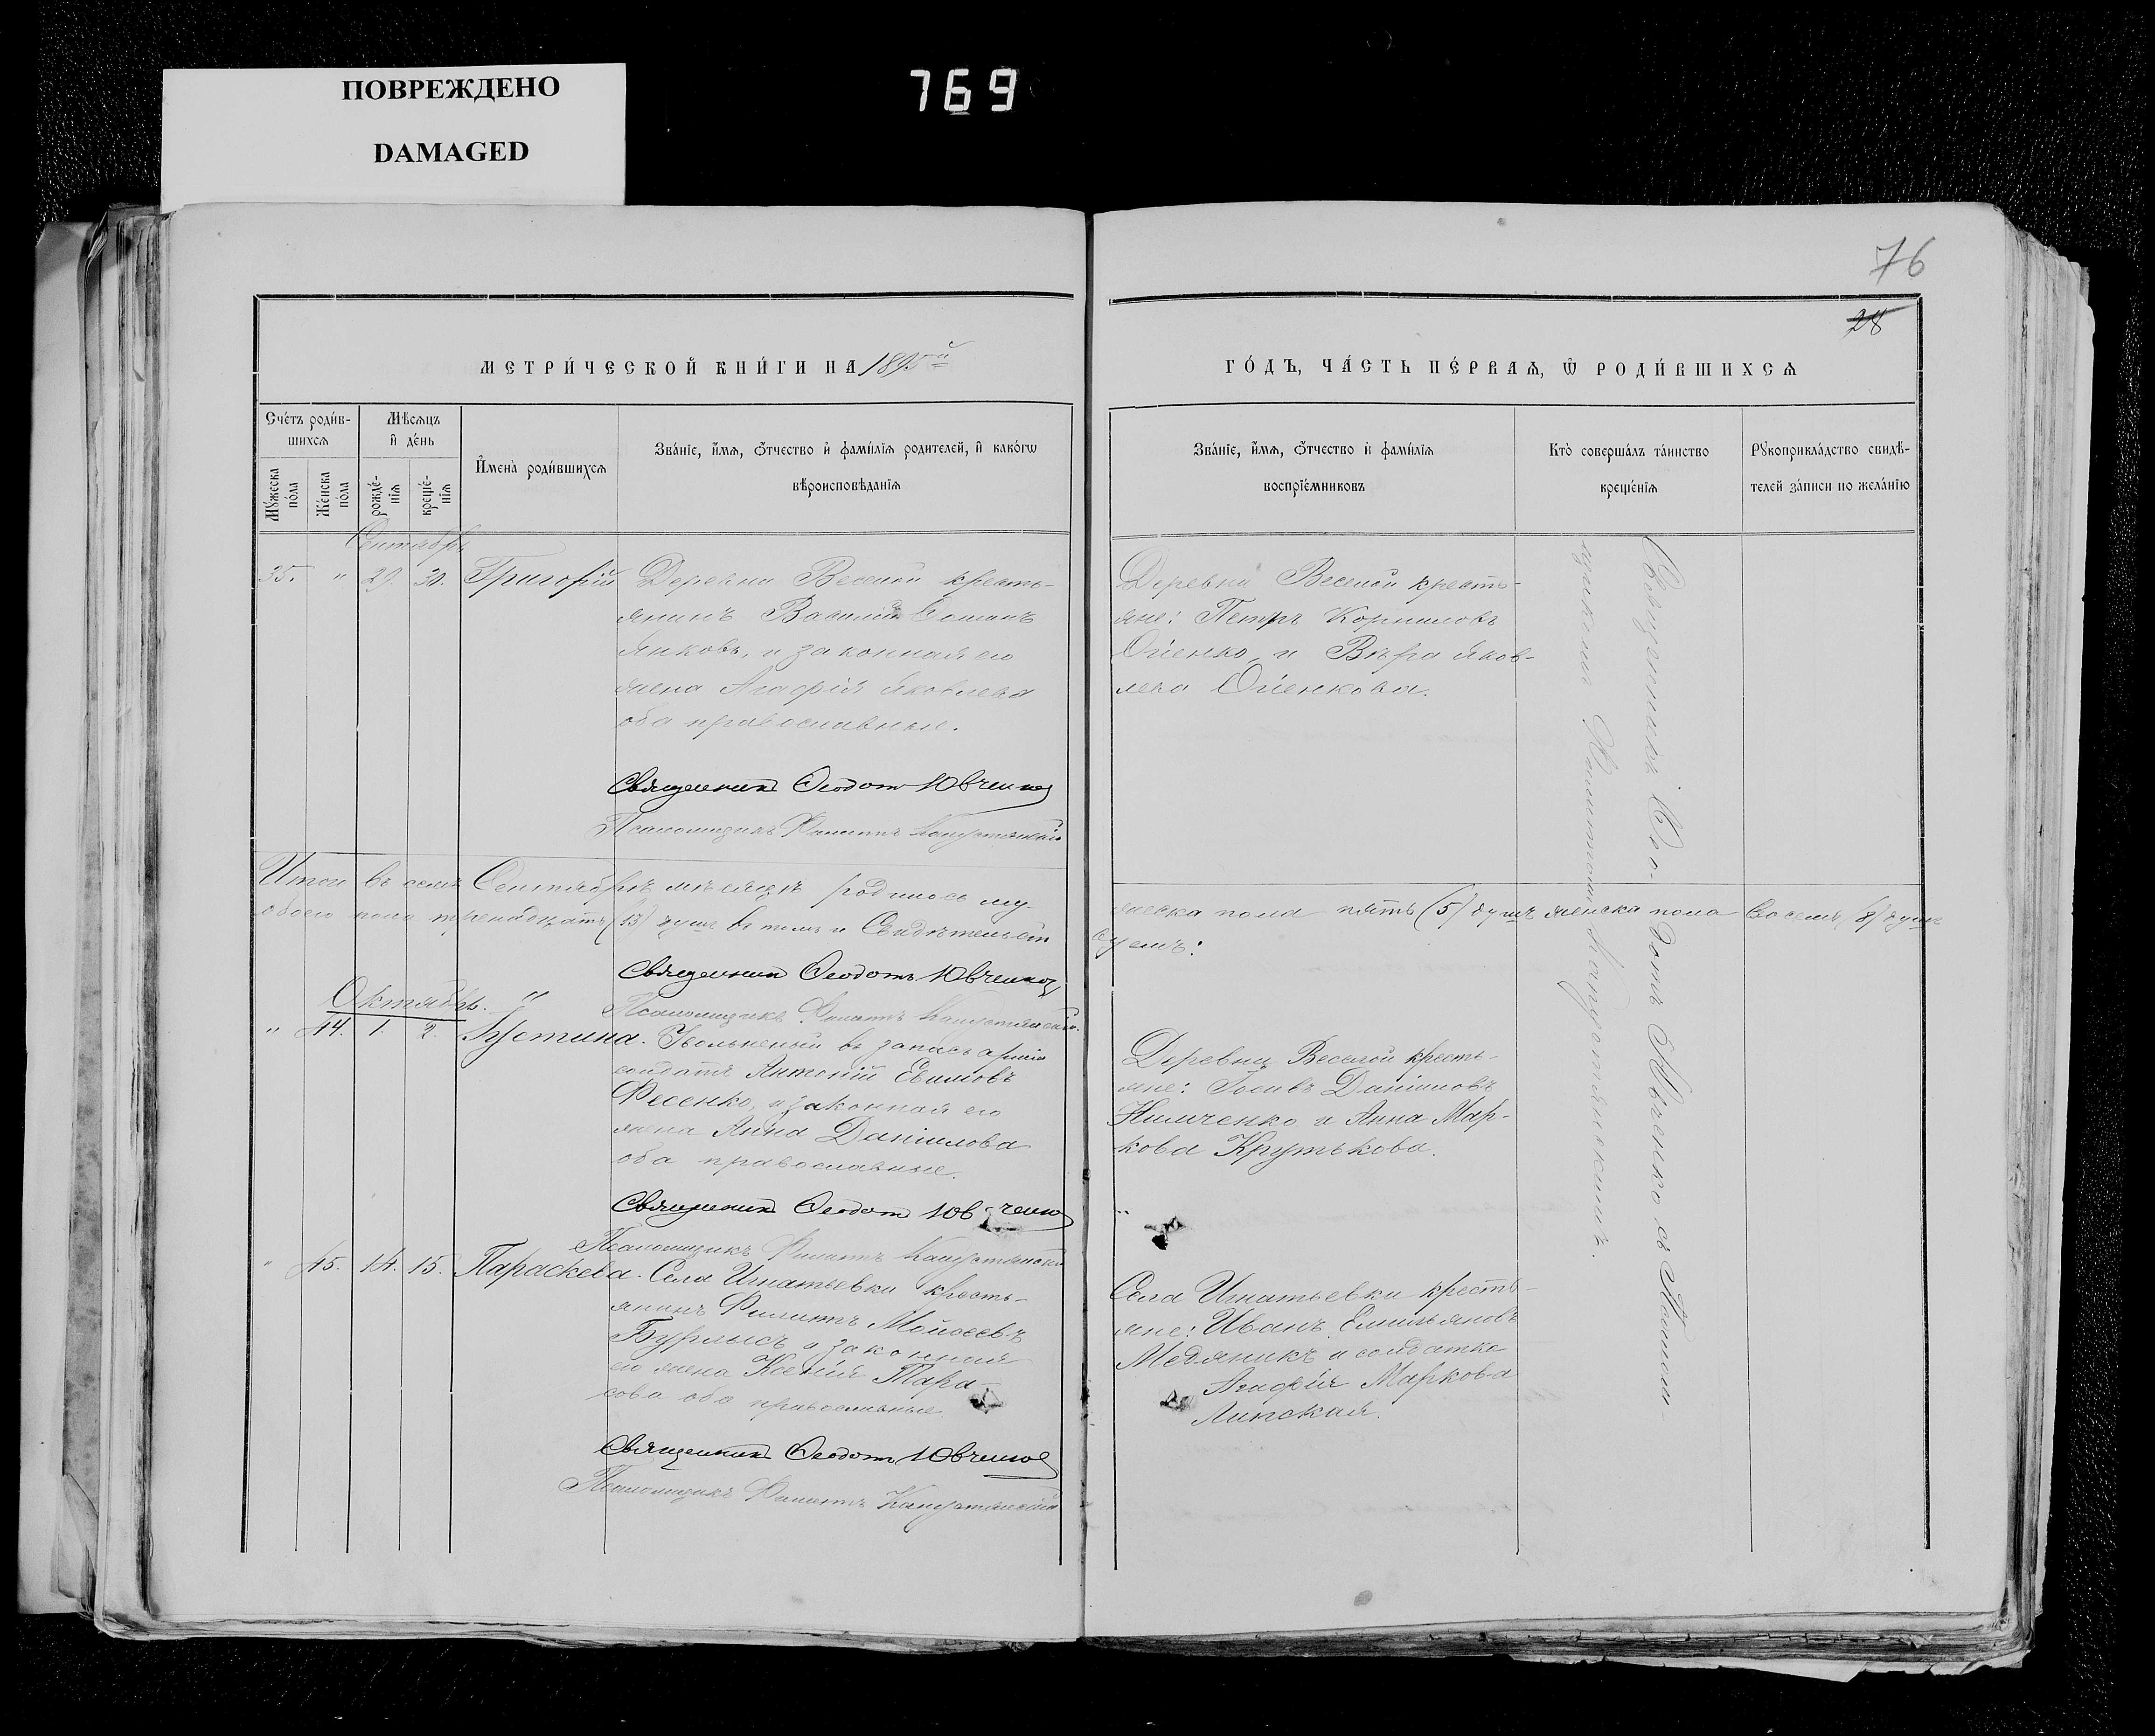 ПОВРЕЖДЕНО
DAMAGED
769
76
28
МЕТРИ́ЧЕСКОЙ КНИ́ГИ НА 1895й
ГО́ДЪ, ЧА́СТЬ ПЕ́РВАѦ, Ѿ РОДИ́ВШИХСѦ
Сче́тъ роди́в-
шихсѧ
Мѣ́сѧцъ
и҆ де́нь
Мꙋ́жеска
по́ла
Же́нска
по́ла
рожде́-
нїѧ
креще́-
нїѧ
И҆мена̀ роди́вшихсѧ
Зва́нїе, и҆́мѧ, ѻ҆́тчество и҆ фами́лїѧ родителей, и҆ како́гѡ
вѣроисповѣ́данїѧ
Зва́нїе, и҆́мѧ, ѻ҆́тчество и҆ фами́лїѧ
воспрїе́мниковъ
Кто̀ соверша́лъ та́инство
креще́нїѧ
Рꙋкоприкла́дство свидѣ́-
телей за́писи по жела́нїю
Сентябрь
35. " 29. 30. Григорій
Деревни Веселой кресть-
янинъ Василій Фоминъ
Янковъ, и законная его
жена Агафія Яковлева
оба православные.
Священникъ Ѳеодотъ Ювченко
Псаломщикъ Филиппъ Капустянскій
Деревни Веселой кресть-
яне: Петръ Корниловъ
Оіенко, и Вѣра Яков-
лева Оіенкова.
Священникъ Ѳео-
дотъ Ювченко съ Псалом-
щикомъ Филиппомъ Капустянскимъ.
Итого въ семъ Сентябрѣ мѣсяцѣ родилось му-
жеска пола пять (5) душъ женска пола восемь (8) душъ
обоего пола тринадцать (13) душъ въ томъ и Свидѣтельст-
вуемъ:
Священникъ Ѳеодотъ Ювченко
Псаломщикъ Филиппъ Капустянскій.
Октябрь. "
" 44. 1. 2. Іустина.
Увольненый въ запасъ арміи
солдатъ Антоній Евимовъ
Фесенко, и законная его
жена Анна Даніилова
оба православные.
Священникъ Ѳеодотъ Ювченко
Псаломщикъ Филиппъ Капустянскій
Деревни Веселой кресть-
яне: Іосифъ Даніиловъ
Нимченко и Анна Мар-
кова Крутькова.
" 45. 14. 15. Параскева.
Села Игнатьевки кресть-
янинъ Филиппъ Мойсеевъ
Бурлисъ и законная
его жена Ксенія Тара-
сова оба православные.
Священникъ Ѳеодотъ Ювченко
Псаломщикъ Филиппъ Капустянскій
Села Игнатьевки кресть-
яне: Иванъ Емильяновъ
Медяникъ и солдатка
Агафія Маркова
Линская.